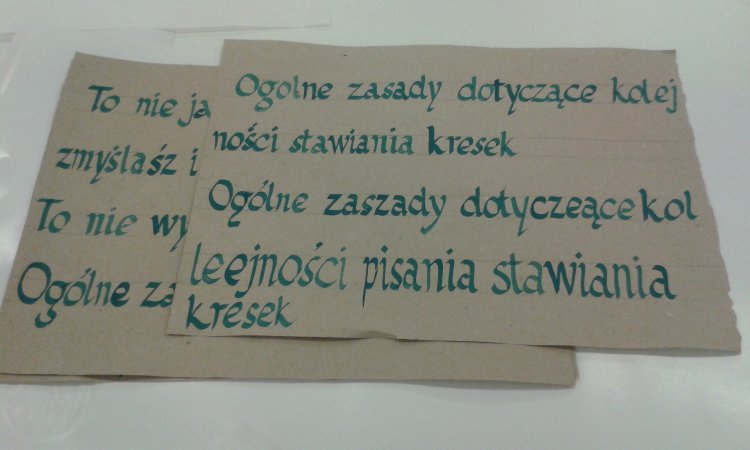 To nie
zmyślasz i
To nie
Ogólne
Ogolne zasady dotyczące kolej
ności stawiania kresek
Ogólne zaszady dotyczeące kol
leejności pisania stawiania
kresek